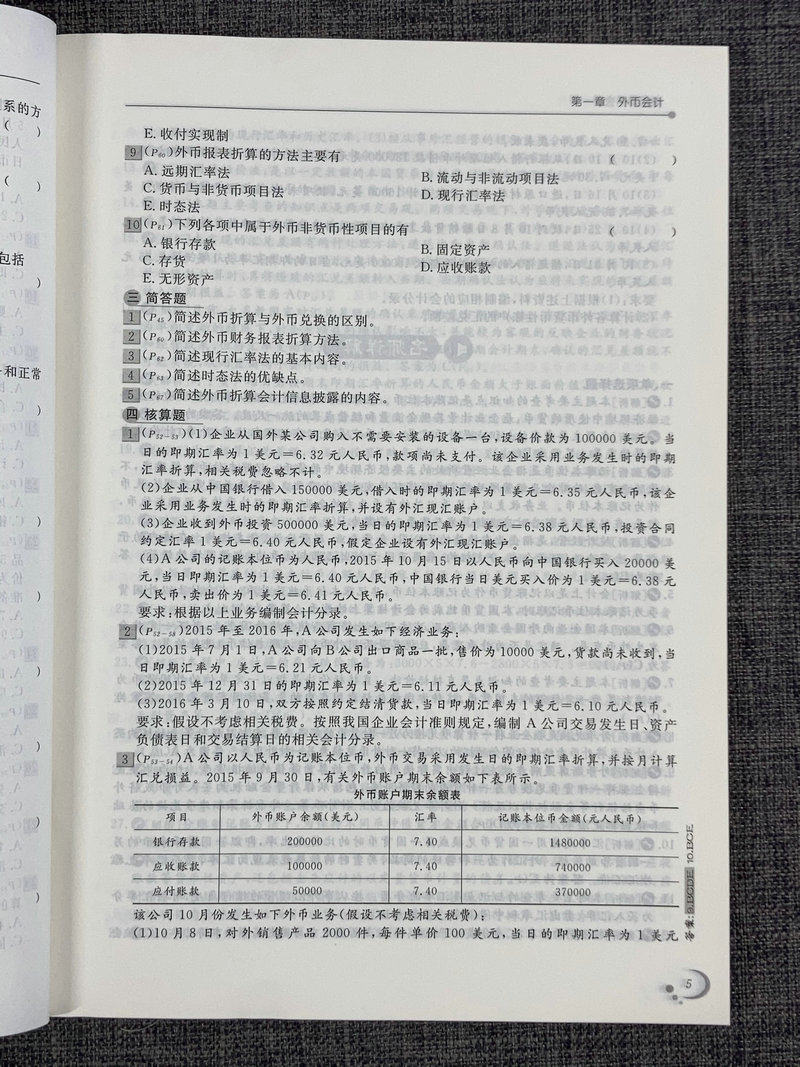 系的方
(    )
(    )
包括
)
和正常
)
第一章 外币会计
E. 收付实现制
9 (P60)外币报表折算的方法主要有 (    )
A. 远期汇率法 B. 流动与非流动项目法
C. 货币与非货币项目法 D. 现行汇率法
E. 时态法
10 (P61)下列各项中属于外币非货币性项目的有 (    )
A. 银行存款 B. 固定资产
C. 存货 D. 应收账款
E. 无形资产
三 简答题
1 (P45)简述外币折算与外币兑换的区别。
2 (P60)简述外币财务报表折算方法。
3 (P62)简述现行汇率法的基本内容。
4 (P63)简述时态法的优缺点。
5 (P67)简述外币折算会计信息披露的内容。
四 核算题
1 (P52-53)(1)企业从国外某公司购入不需要安装的设备一台,设备价款为 100000 美元。当
日的即期汇率为 1 美元=6.32 元人民币,款项尚未支付。该企业采用业务发生时的即期
汇率折算,相关税费忽略不计。
(2)企业从中国银行借入 150000 美元,借入时的即期汇率为 1 美元=6.35 元人民币,该企
业采用业务发生时的即期汇率折算,并设有外汇现汇账户。
(3)企业收到外币投资 500000 美元,当日的即期汇率为 1 美元=6.38 元人民币,投资合同
约定汇率 1 美元=6.40 元人民币,假定企业设有外汇现汇账户。
(4)A 公司的记账本位币为人民币,2015 年 10 月 15 日以人民币向中国银行买入 20000 美
元,当日即期汇率为 1 美元=6.40 元人民币,中国银行当日美元买入价为 1 美元=6.38 元
人民币,卖出价为 1 美元=6.41 元人民币。
要求:根据以上业务编制会计分录。
2 (P52-58)2015 年至 2016 年,A 公司发生如下经济业务:
(1)2015 年 7 月 1 日,A 公司向 B 公司出口商品一批,售价为 10000 美元,货款尚未收到,当
日即期汇率为 1 美元=6.21 元人民币。
(2)2015 年 12 月 31 日的即期汇率为 1 美元=6.11 元人民币。
(3)2016 年 3 月 10 日,双方按照约定结清货款,当日即期汇率为 1 美元=6.10 元人民币。
要求:假设不考虑相关税费。按照我国企业会计准则规定,编制 A 公司交易发生日、资产
负债表日和交易结算日的相关会计分录。
3 (P53-54)A 公司以人民币为记账本位币,外币交易采用发生日的即期汇率折算,并按月计算
汇兑损益。2015 年 9 月 30 日,有关外币账户期末余额如下表所示。
外币账户期末余额表
项目 外币账户余额(美元) 汇率 记账本位币金额(元人民币)
银行存款 200000 7.40 1480000
应收账款 100000 7.40 740000
应付账款 50000 7.40 370000
该公司 10 月份发生如下外币业务(假设不考虑相关税费):
(1)10 月 8 日,对外销售产品 2000 件,每件单价 100 美元,当日的即期汇率为 1 美元
答案:9.BCDE 10.BCE
5